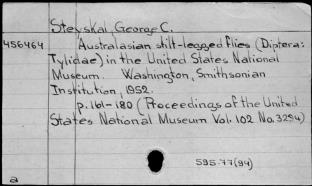 Steyskal, George C.
456464 Australasian stilt-legged flies (Diptera:
Tylidae) in the United States National
Museum. Washington, Smithsonian
Institution, 1952.
p. 161-180 (Proceedings of the United
States National Museum Vol. 102 No. 3294)
595.77(94)
a